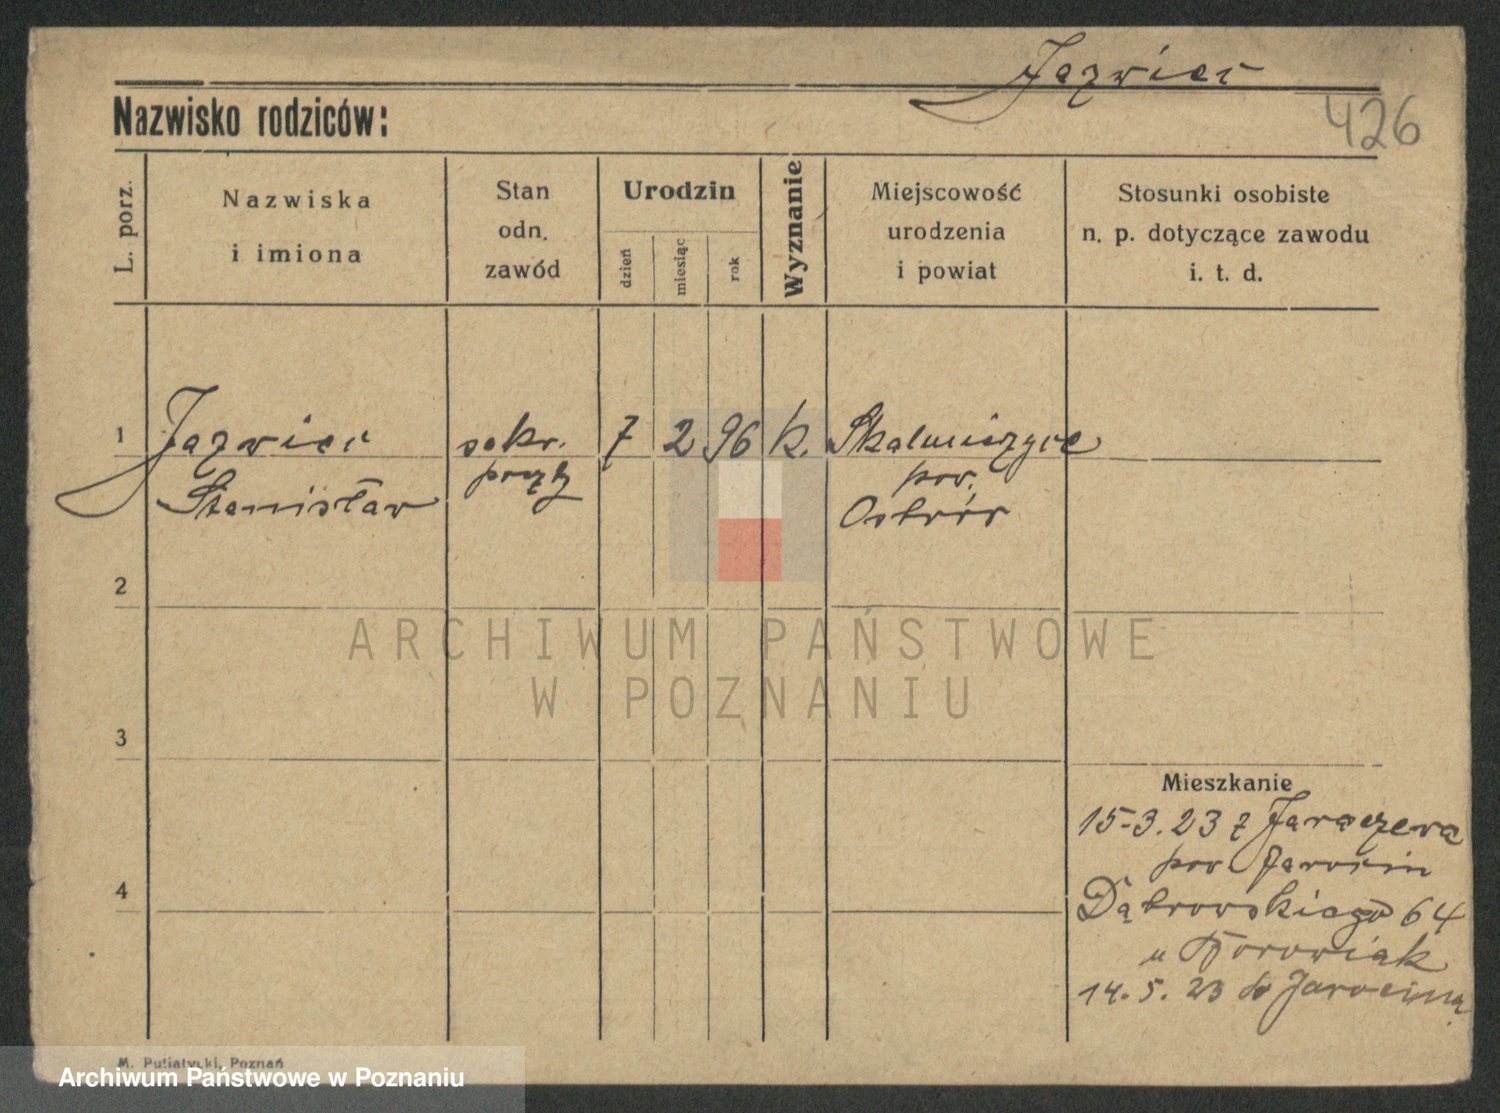 Jazwiec
426
Nazwisko rodziców:
L. porz.
Nazwiska
i imiona
Stan
odn.
zawód
Urodzin
dzień
miesiąc
rok
Wyznanie
Miejscowość
urodzenia
i powiat
Stosunki osobiste
n. p. dotyczące zawodu
i. t. d.
1 Jazwiec sekr. 7 2 96 k. Skalmierzyce
pow.
Stanisław Ostrów
2
ARCHIWUM PAŃSTWOWE
W POZNANIU
3
Mieszkanie
15-3.23 z Jaraczewa
pow Jarocin
4
Dąbrowskiego 64
u Borowiak
14.5.23 do Jarocina
M. Putiatycki, Poznań
Archiwum Państwowe w Poznaniu